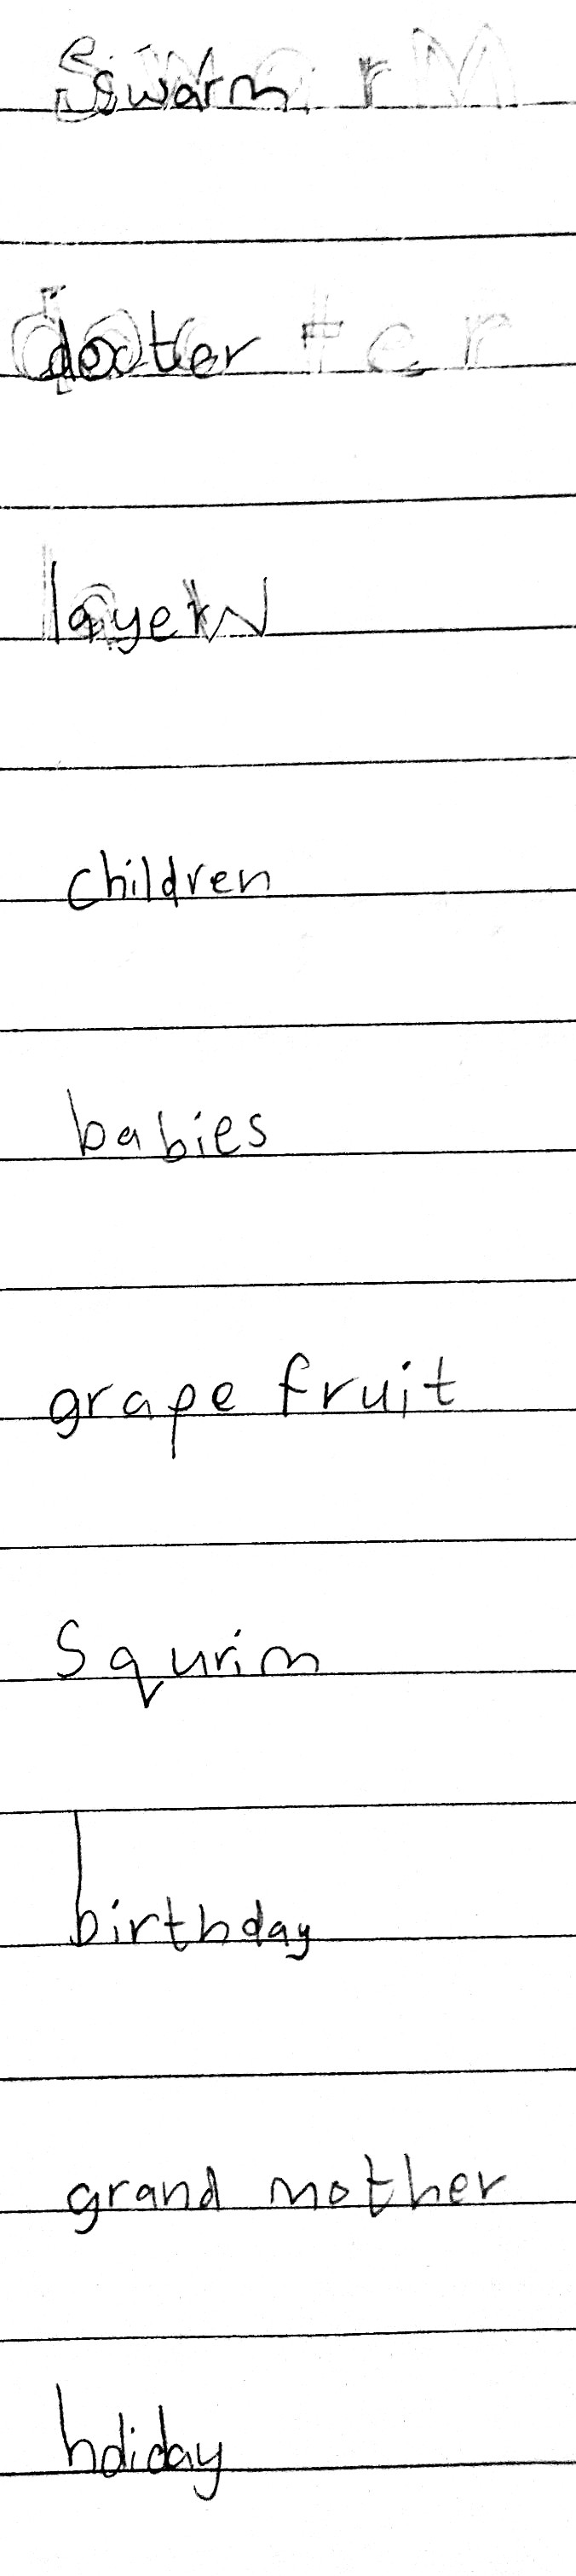 swarm
docter
layer
children
babies
grape fruit
squrim
birthday
grand mother
holiday